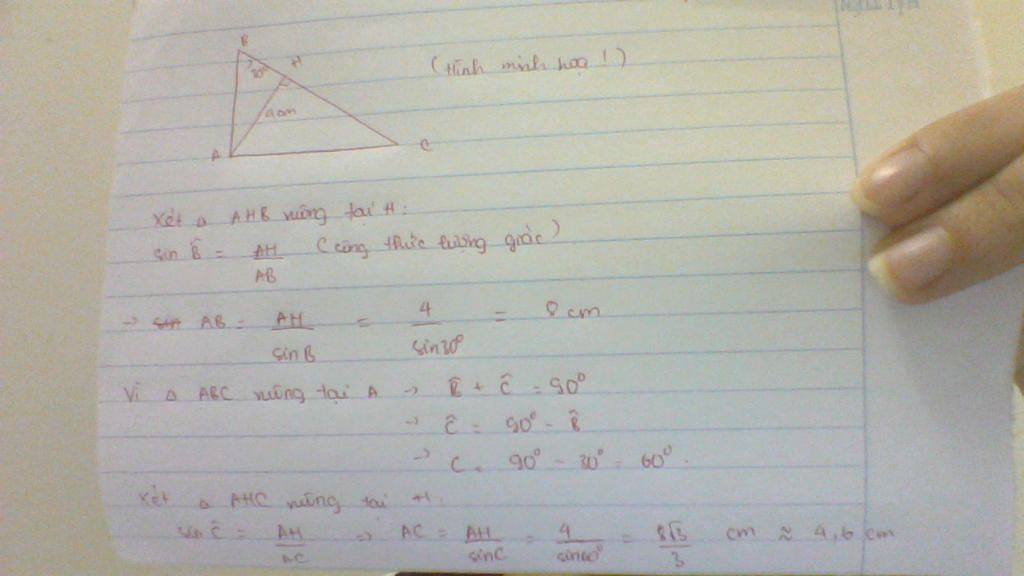 B
30° H
(Hình minh hoạ !)
4cm
A C
Xét Δ AHB vuông tại H:
sin B̂ = AH/AB (công thức lượng giác)
→ AB = AH/sinB = 4/sin30° = 8 cm
Vì Δ ABC vuông tại A → B̂ + Ĉ = 90°
→ Ĉ = 90° - B̂
→ C = 90° - 30° = 60°.
Xét Δ AHC vuông tại H:
sin Ĉ = AH/AC => AC = AH/sinC = 4/sin60° = 8√3/3 cm ≈ 4,6 cm